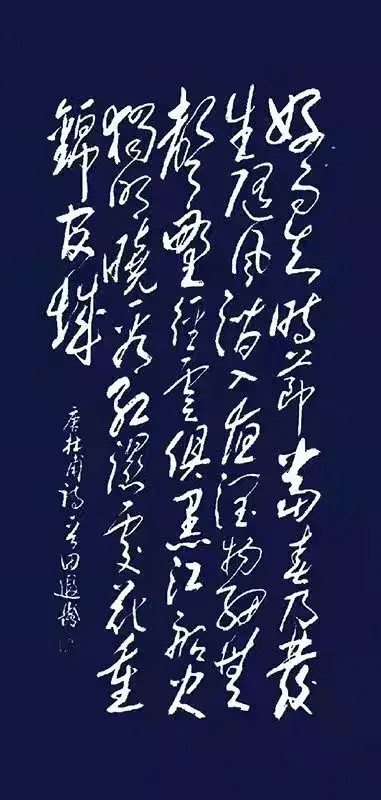 好雨知時節當春乃發
生隨風潛入夜潤物細無
聲野徑雲俱黑江船火
獨明曉看紅濕處花重
錦官城
唐杜甫詩 田遐齡